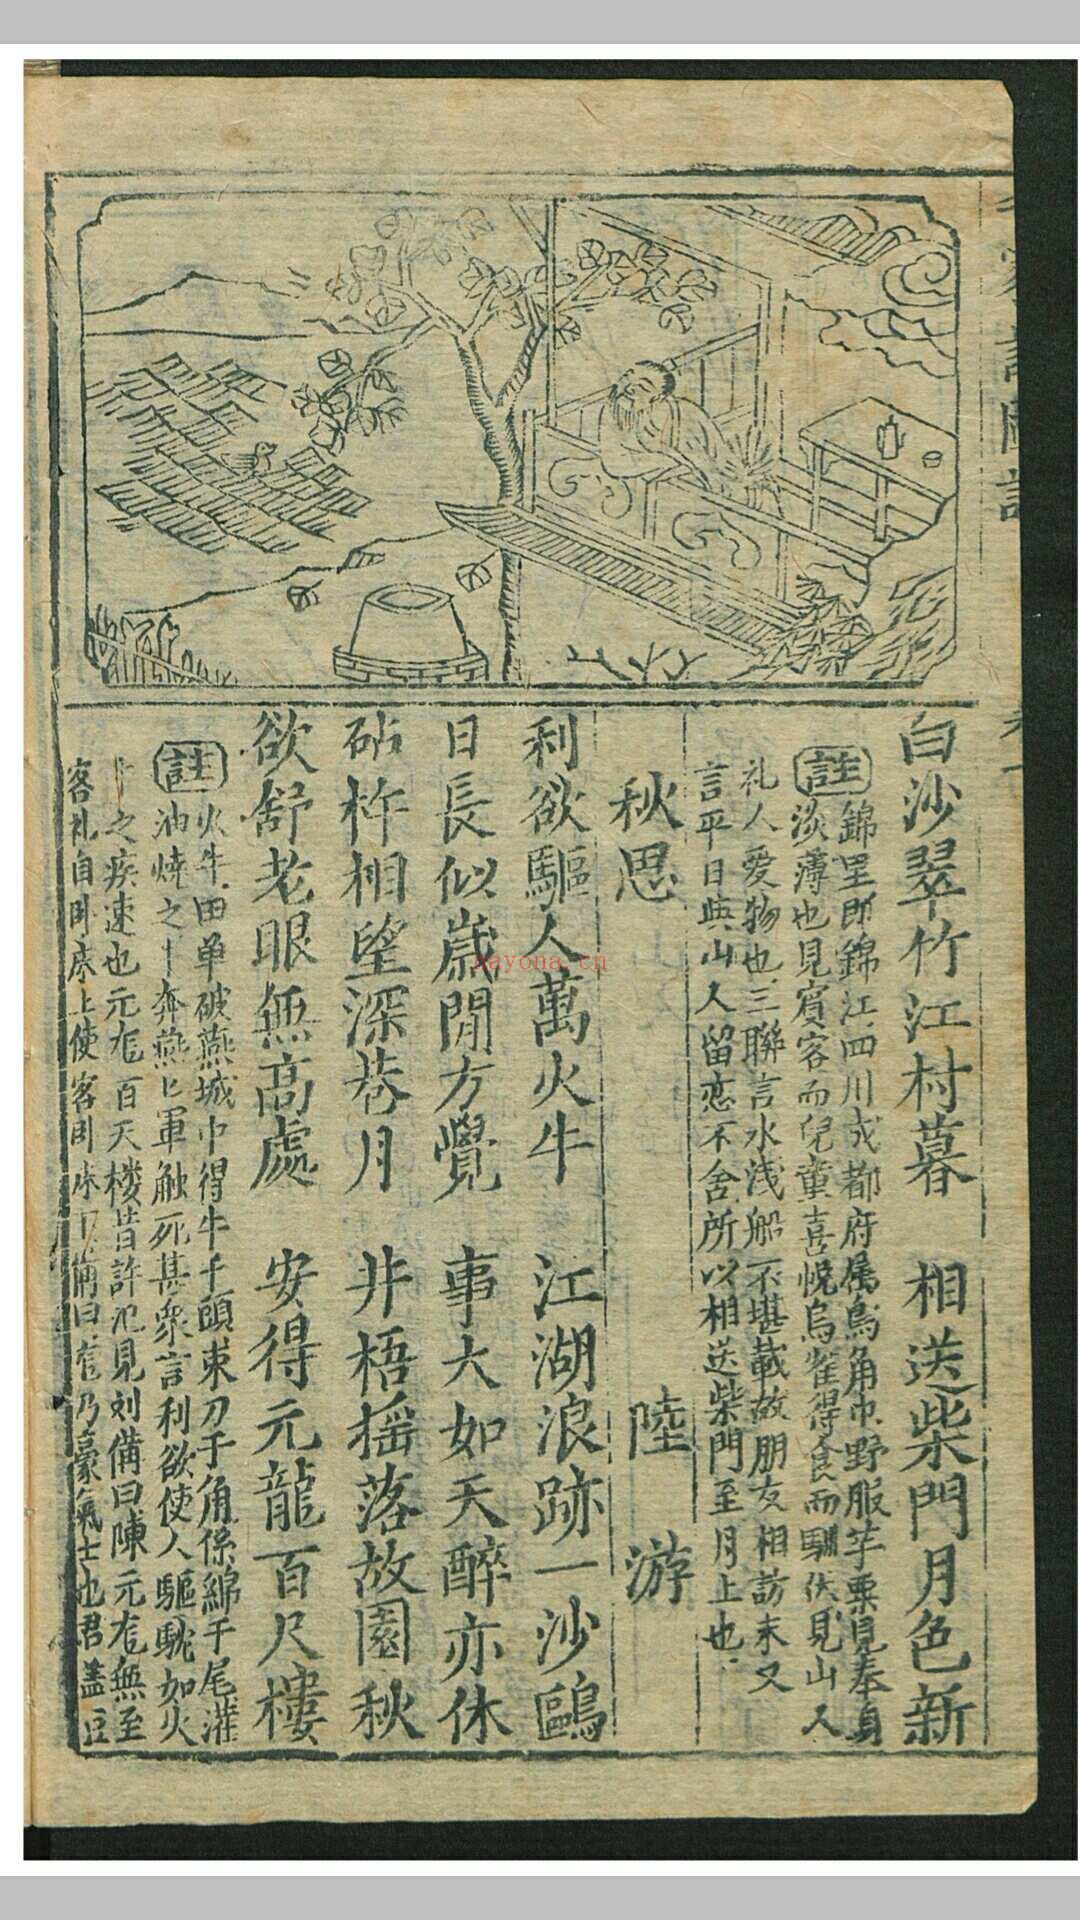 白沙翠竹江村暮　相送柴門月色新
註
錦里即錦江四川成都府属烏角巾野服芋栗見奉身
淡薄也見賓客而兒童喜悅烏雀得食而馴伏見山人
礼人愛物也三聯言水浅船不堪載故朋友相訪末又
言平日與山人留恋不舍所以相送柴門至月上也
秋思　陸游
利欲驅人萬火牛　江湖浪跡一沙鷗
日長似歲閒方覺　事大如天醉亦休
砧杵相望深巷月　井梧摇落故園秋
欲舒老眼無高處　安得元龍百尺樓
註
火牛田单破燕城中得牛千頭束刀于角係綿于尾灌
油燒之奔燕匕軍触死甚衆言利欲使人驅馳如火
之疾速也元龙百天楼昔許氾見刘備曰陳元龙無至
客礼自卧床上使客卧床下備曰龙乃豪氣士也君盖臣
nayona.cn